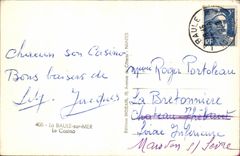 Chacun son Casino
Bons baisers de
Lily. Jacques
406 - La BAULE-sur-MER
Le Casino
BAULE
Roger Portoleau
La Bretonnière
Château Thébaud
Loire Inférieure
s/ Sèvre